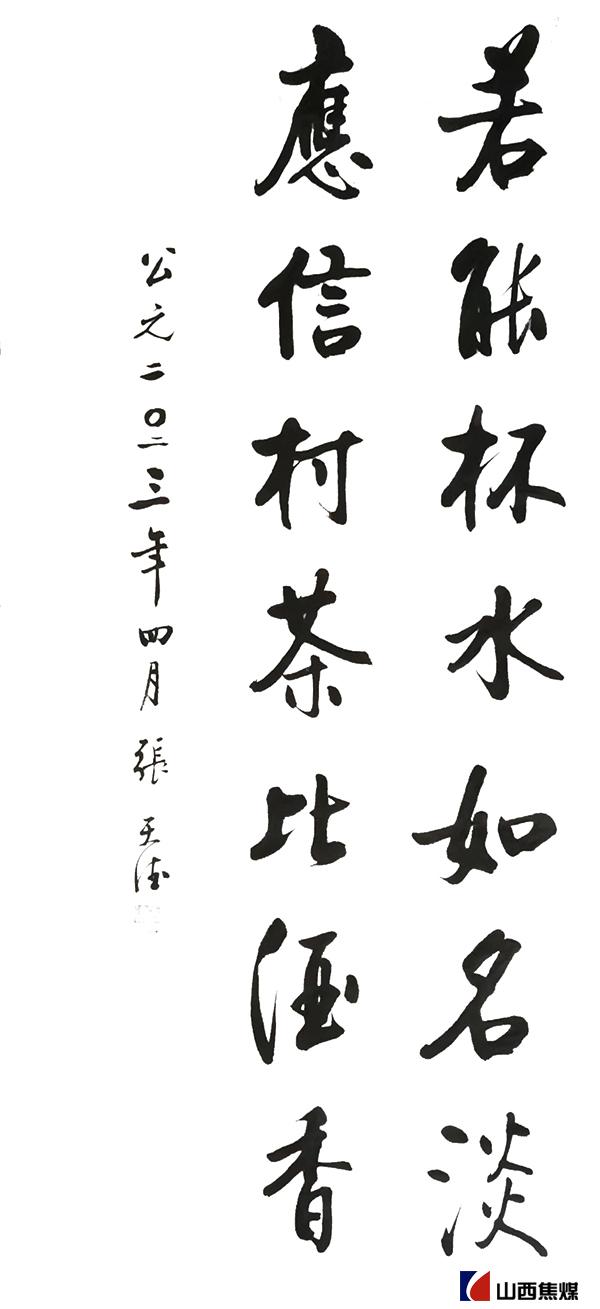 若能杯水如名淡
應信村茶比酒香
公元二〇二三年四月張天德
山西焦煤